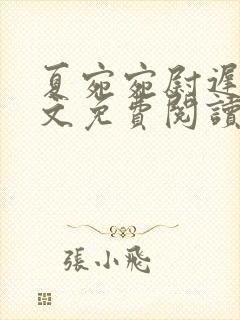 夏宛宛尉遲
文免費閱讀
張小飛